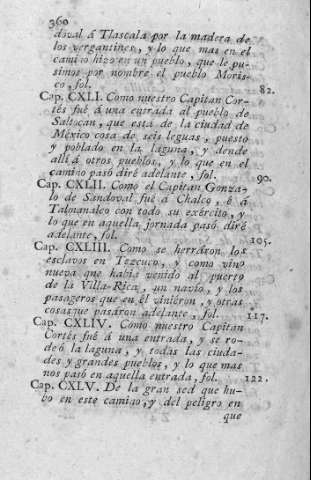 360
doval á Tlascala por la madera de
los vergantines, y lo que mas en el
camino hizo en un pueblo, que le pu-
simos por nombre el pueblo Moris-
co, fol. 82.
Cap. CXLI. Como nuestro Capitan Cor-
tés fué á una entrada al pueblo de
Saltocan, que está de la ciudad de
México cosa de seis leguas, puesto
y poblado en la laguna, y dende
allí á otros pueblos, y lo que en el
camino pasó diré adelante, fol. 90.
Cap. CXLII. Como el Capitan Gonza-
lo de Sandoval fué á Chalco, é á
Talmanalco con todo su exército, y
lo que en aquella jornada pasó diré
adelante, fol. 105.
Cap. CXLIII. Como se herráron los
esclavos en Tezcuco, y como vino
nueva que habia venido al puerto
de la Villa-Rica, un navío, y los
pasageros que en él viniéron, y otras
cosas que pasáron adelante, fol. 117.
Cap. CXLIV. Como nuestro Capitan
Cortés fué á una entrada, y se ro-
deó la laguna, y todas las ciuda-
des y grandes pueblos, y lo que mas
nos pasó en aquella entrada, fol. 122.
Cap. CXLV. De la gran sed que hu-
bo en este camino, y del peligro en
que